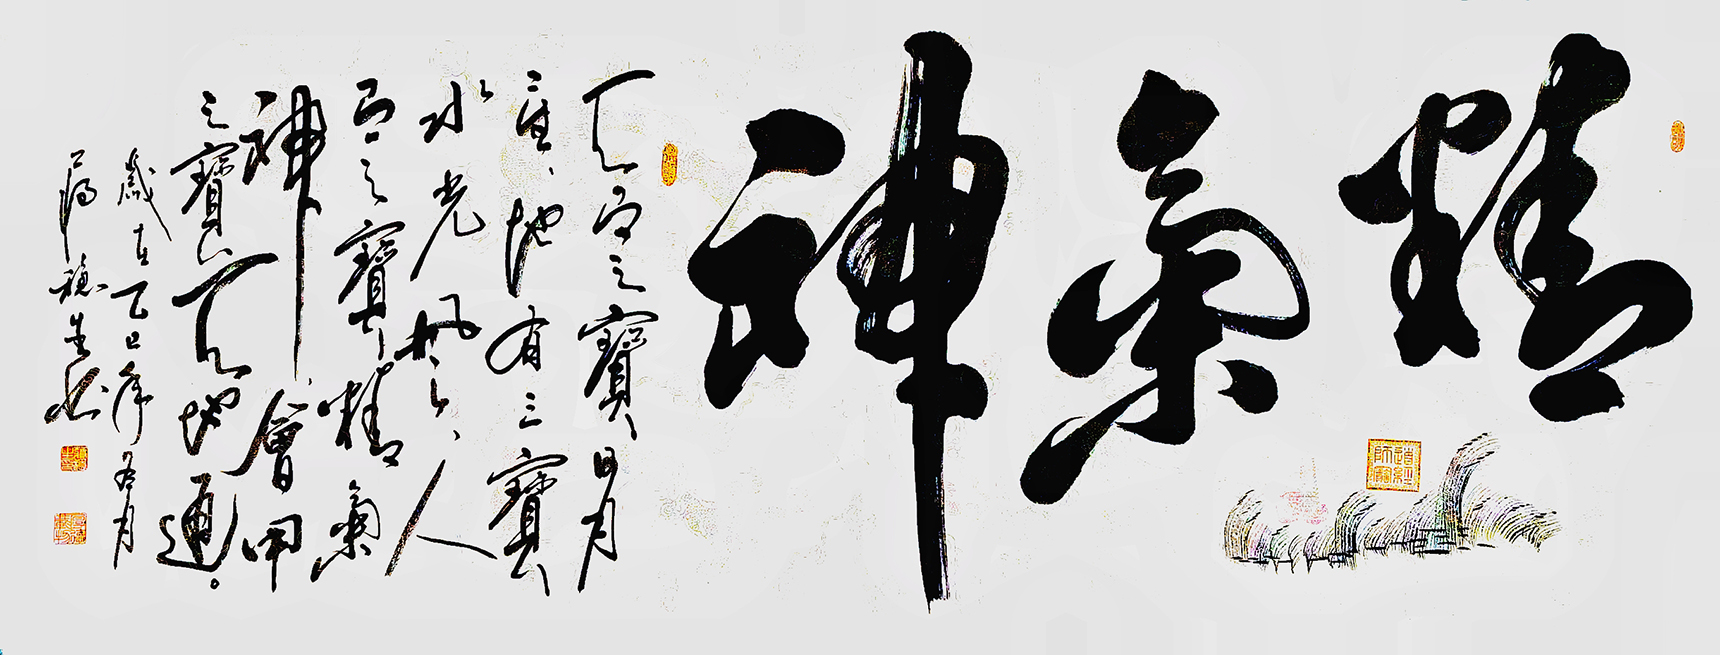 精氣神
道經師寶
天有三寶日月
星地有三寶
水火風人
有三寶精氣
神會用
三寶天地通。
歲在乙巳年月